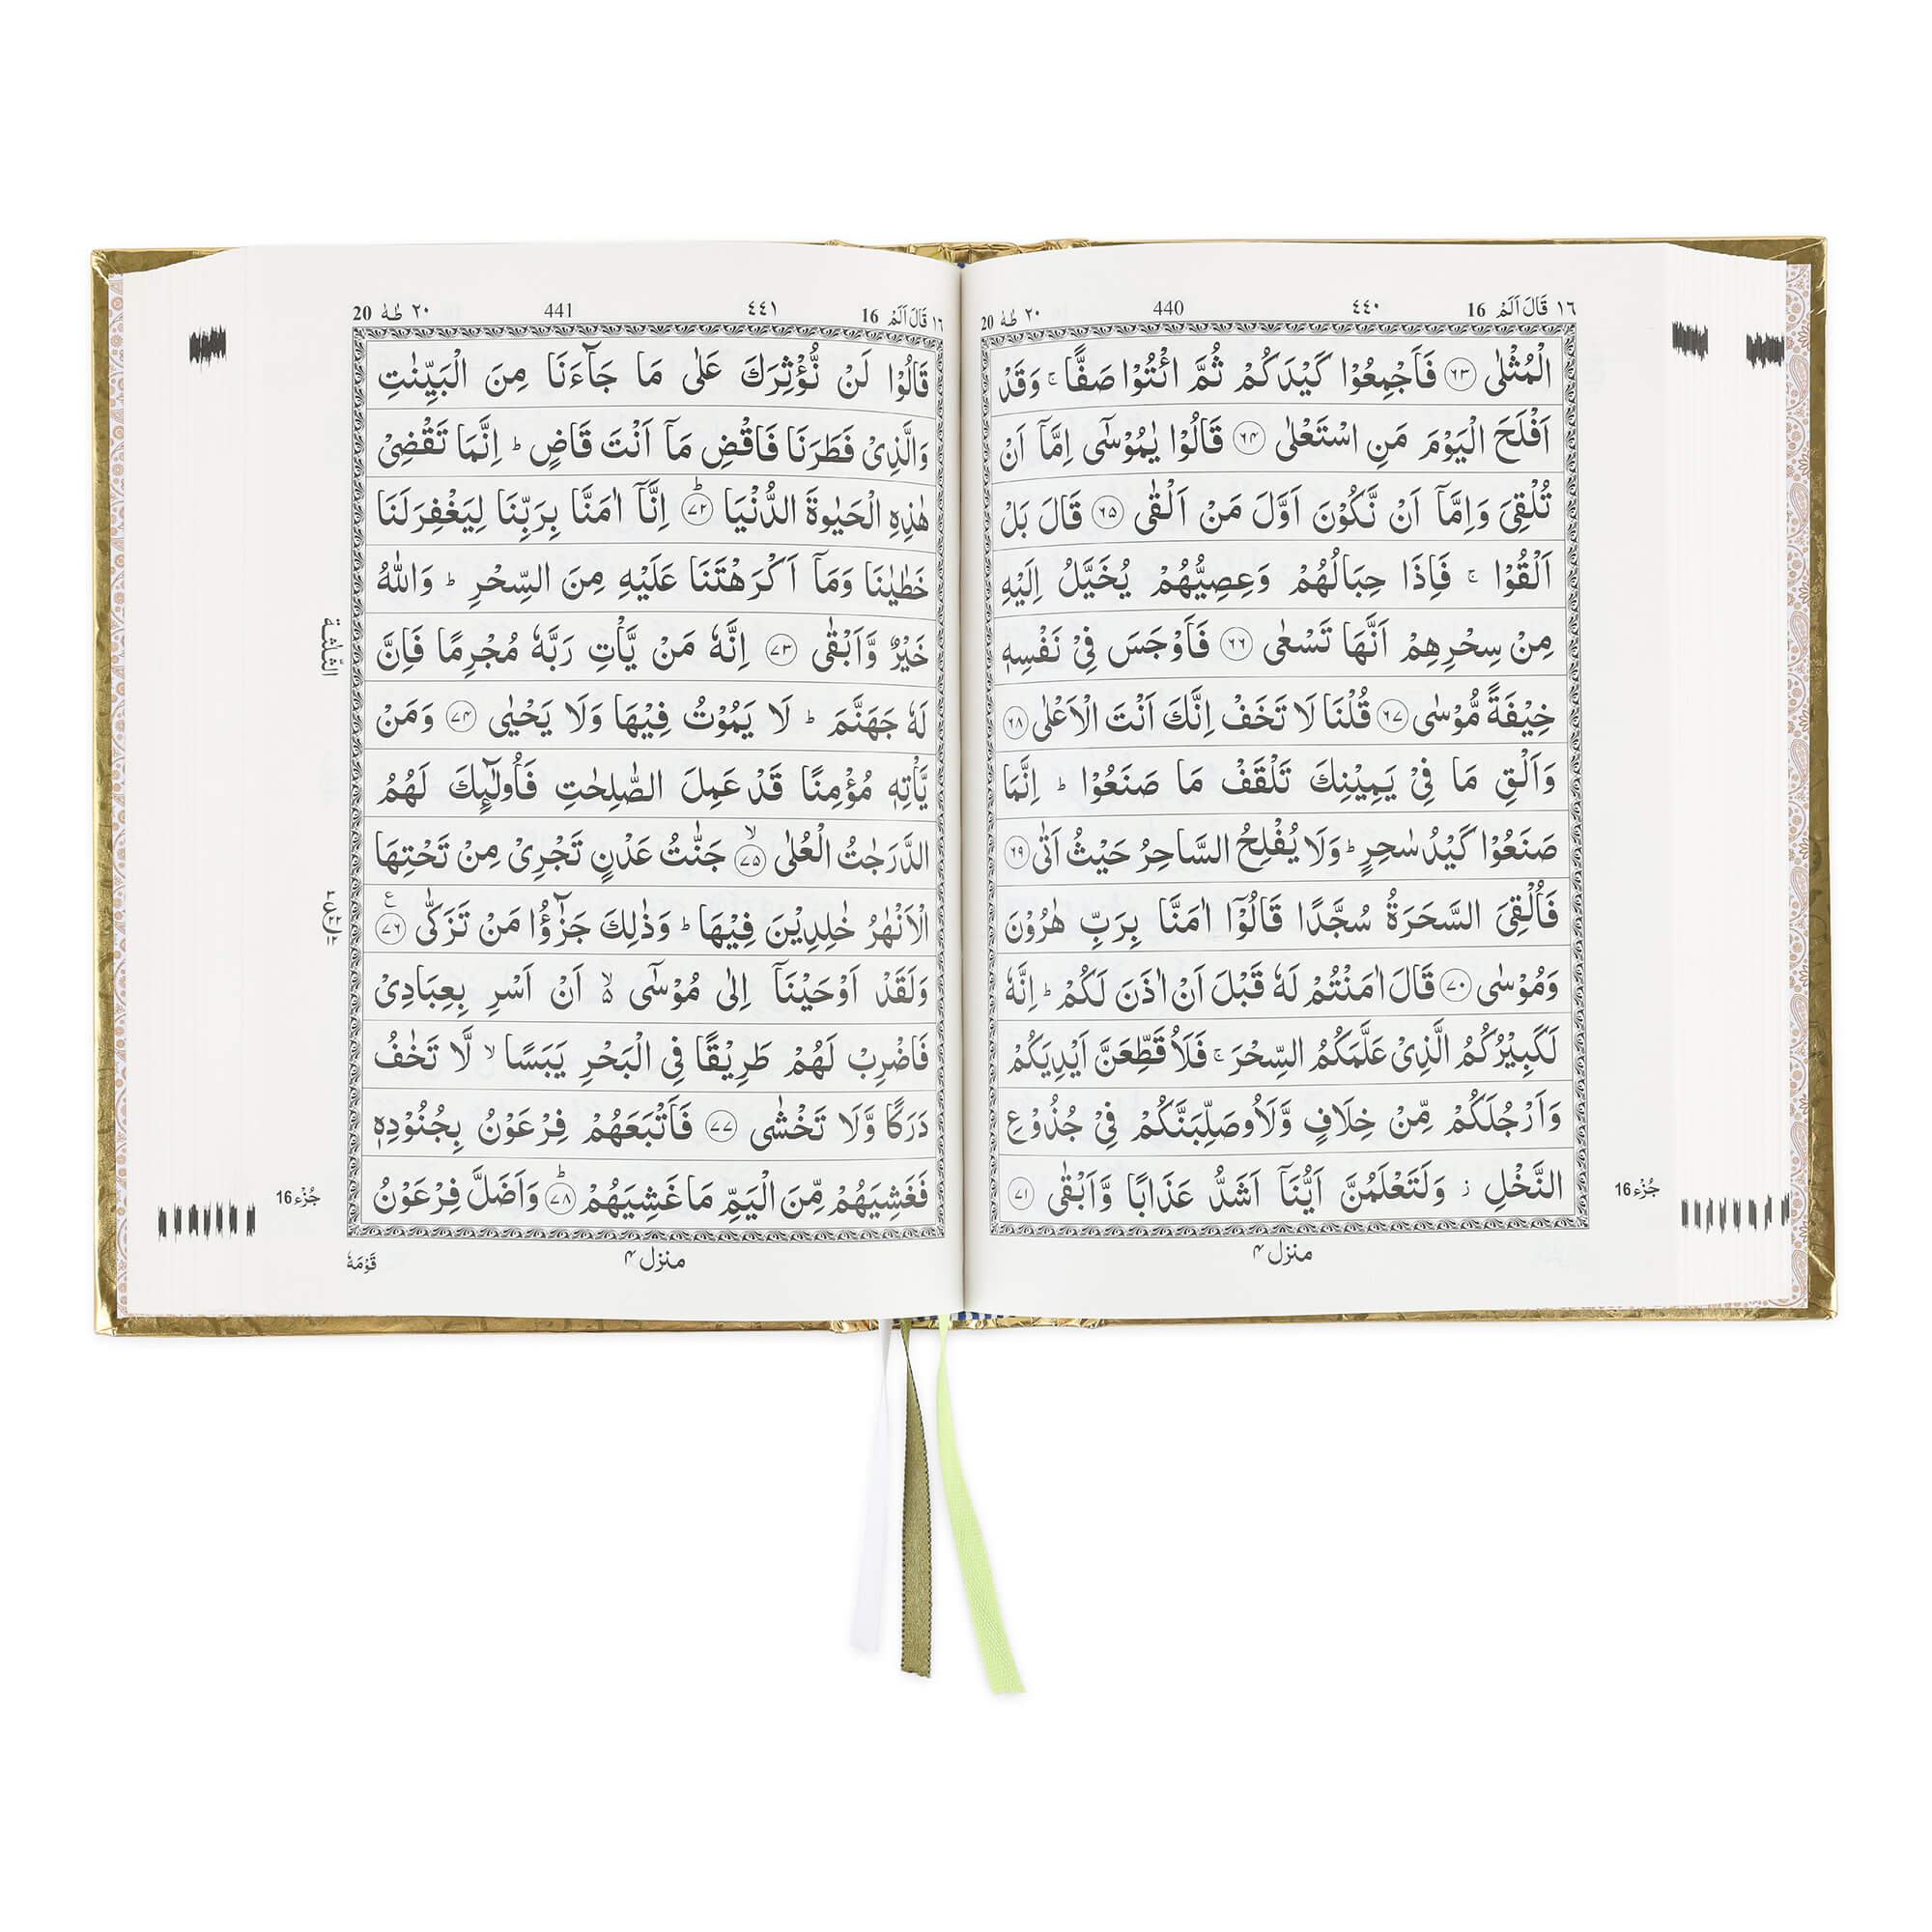 ١٦ قَالَ اَلَمْ 16 ٤٤٠ 440 ٢٠ طٰهٰ 20
الْمُثْلٰى ﴿۶۳﴾ فَاَجْمِعُوْا كَيْدَكُمْ ثُمَّ ائْتُوْا صَفًّا ۚ وَقَدْ
اَفْلَحَ الْيَوْمَ مَنِ اسْتَعْلٰى ﴿۶۴﴾ قَالُوْا يٰمُوْسٰٓى اِمَّآ اَنْ
تُلْقِىَ وَاِمَّآ اَنْ نَّكُوْنَ اَوَّلَ مَنْ اَلْقٰى ﴿۶۵﴾ قَالَ بَلْ
اَلْقُوْا ۚ فَاِذَا حِبَالُهُمْ وَعِصِيُّهُمْ يُخَيَّلُ اِلَيْهِ
مِنْ سِحْرِهِمْ اَنَّهَا تَسْعٰى ﴿۶۶﴾ فَاَوْجَسَ فِىْ نَفْسِهٖ
خِيْفَةً مُّوْسٰى ﴿۶۷﴾ قُلْنَا لَا تَخَفْ اِنَّكَ اَنْتَ الْاَعْلٰى ﴿۶۸﴾
وَاَلْقِ مَا فِىْ يَمِيْنِكَ تَلْقَفْ مَا صَنَعُوْا ؕ اِنَّمَا
صَنَعُوْا كَيْدُ سٰحِرٍ ؕ وَلَا يُفْلِحُ السَّاحِرُ حَيْثُ اَتٰى ﴿۶۹﴾
فَاُلْقِىَ السَّحَرَةُ سُجَّدًا قَالُوْٓا اٰمَنَّا بِرَبِّ هٰرُوْنَ
وَمُوْسٰى ﴿۷۰﴾ قَالَ اٰمَنْتُمْ لَهٗ قَبْلَ اَنْ اٰذَنَ لَكُمْ ؕ اِنَّهٗ
لَكَبِيْرُكُمُ الَّذِىْ عَلَّمَكُمُ السِّحْرَ ۚ فَلَاُقَطِّعَنَّ اَيْدِيَكُمْ
وَاَرْجُلَكُمْ مِّنْ خِلَافٍ وَّلَاُوصَلِّبَنَّكُمْ فِىْ جُذُوْعِ
النَّخْلِ ز وَلَتَعْلَمُنَّ اَيُّنَآ اَشَدُّ عَذَابًا وَّاَبْقٰى ﴿۷۱﴾
جُزْء 16
منزل ۴
١٦ قَالَ اَلَمْ 16 ٤٤١ 441 ٢٠ طٰهٰ 20
قَالُوْا لَنْ نُّؤْثِرَكَ عَلٰى مَا جَآءَنَا مِنَ الْبَيِّنٰتِ
وَالَّذِىْ فَطَرَنَا فَاقْضِ مَآ اَنْتَ قَاضٍ ؕ اِنَّمَا تَقْضِىْ
هٰذِهِ الْحَيٰوةَ الدُّنْيَا ؕ﴿۷۲﴾ اِنَّآ اٰمَنَّا بِرَبِّنَا لِيَغْفِرَ لَنَا
خَطٰيٰنَا وَمَآ اَكْرَهْتَنَا عَلَيْهِ مِنَ السِّحْرِ ؕ وَاللّٰهُ
خَيْرٌ وَّاَبْقٰى ﴿۷۳﴾ اِنَّهٗ مَنْ يَّاْتِ رَبَّهٗ مُجْرِمًا فَاِنَّ
لَهٗ جَهَنَّمَ ؕ لَا يَمُوْتُ فِيْهَا وَلَا يَحْيٰى ﴿۷۴﴾ وَمَنْ
يَّاْتِهٖ مُؤْمِنًا قَدْ عَمِلَ الصّٰلِحٰتِ فَاُولٰٓئِكَ لَهُمُ
الدَّرَجٰتُ الْعُلٰى ۙ﴿۷۵﴾ جَنّٰتُ عَدْنٍ تَجْرِىْ مِنْ تَحْتِهَا
الْاَنْهٰرُ خٰلِدِيْنَ فِيْهَا ؕ وَذٰلِكَ جَزٰٓؤُا مَنْ تَزَكّٰى ﴿۷۶﴾ ع
وَلَقَدْ اَوْحَيْنَآ اِلٰى مُوْسٰٓى ۙ اَنْ اَسْرِ بِعِبَادِىْ
فَاضْرِبْ لَهُمْ طَرِيْقًا فِى الْبَحْرِ يَبَسًا ۙ لَّا تَخٰفُ
دَرَكًا وَّلَا تَخْشٰى ﴿۷۷﴾ فَاَتْبَعَهُمْ فِرْعَوْنُ بِجُنُوْدِهٖ
فَغَشِيَهُمْ مِّنَ الْيَمِّ مَا غَشِيَهُمْ ؕ﴿۷۸﴾ وَاَضَلَّ فِرْعَوْنُ
جُزْء 16
منزل ۴
قَوْمَهٗ